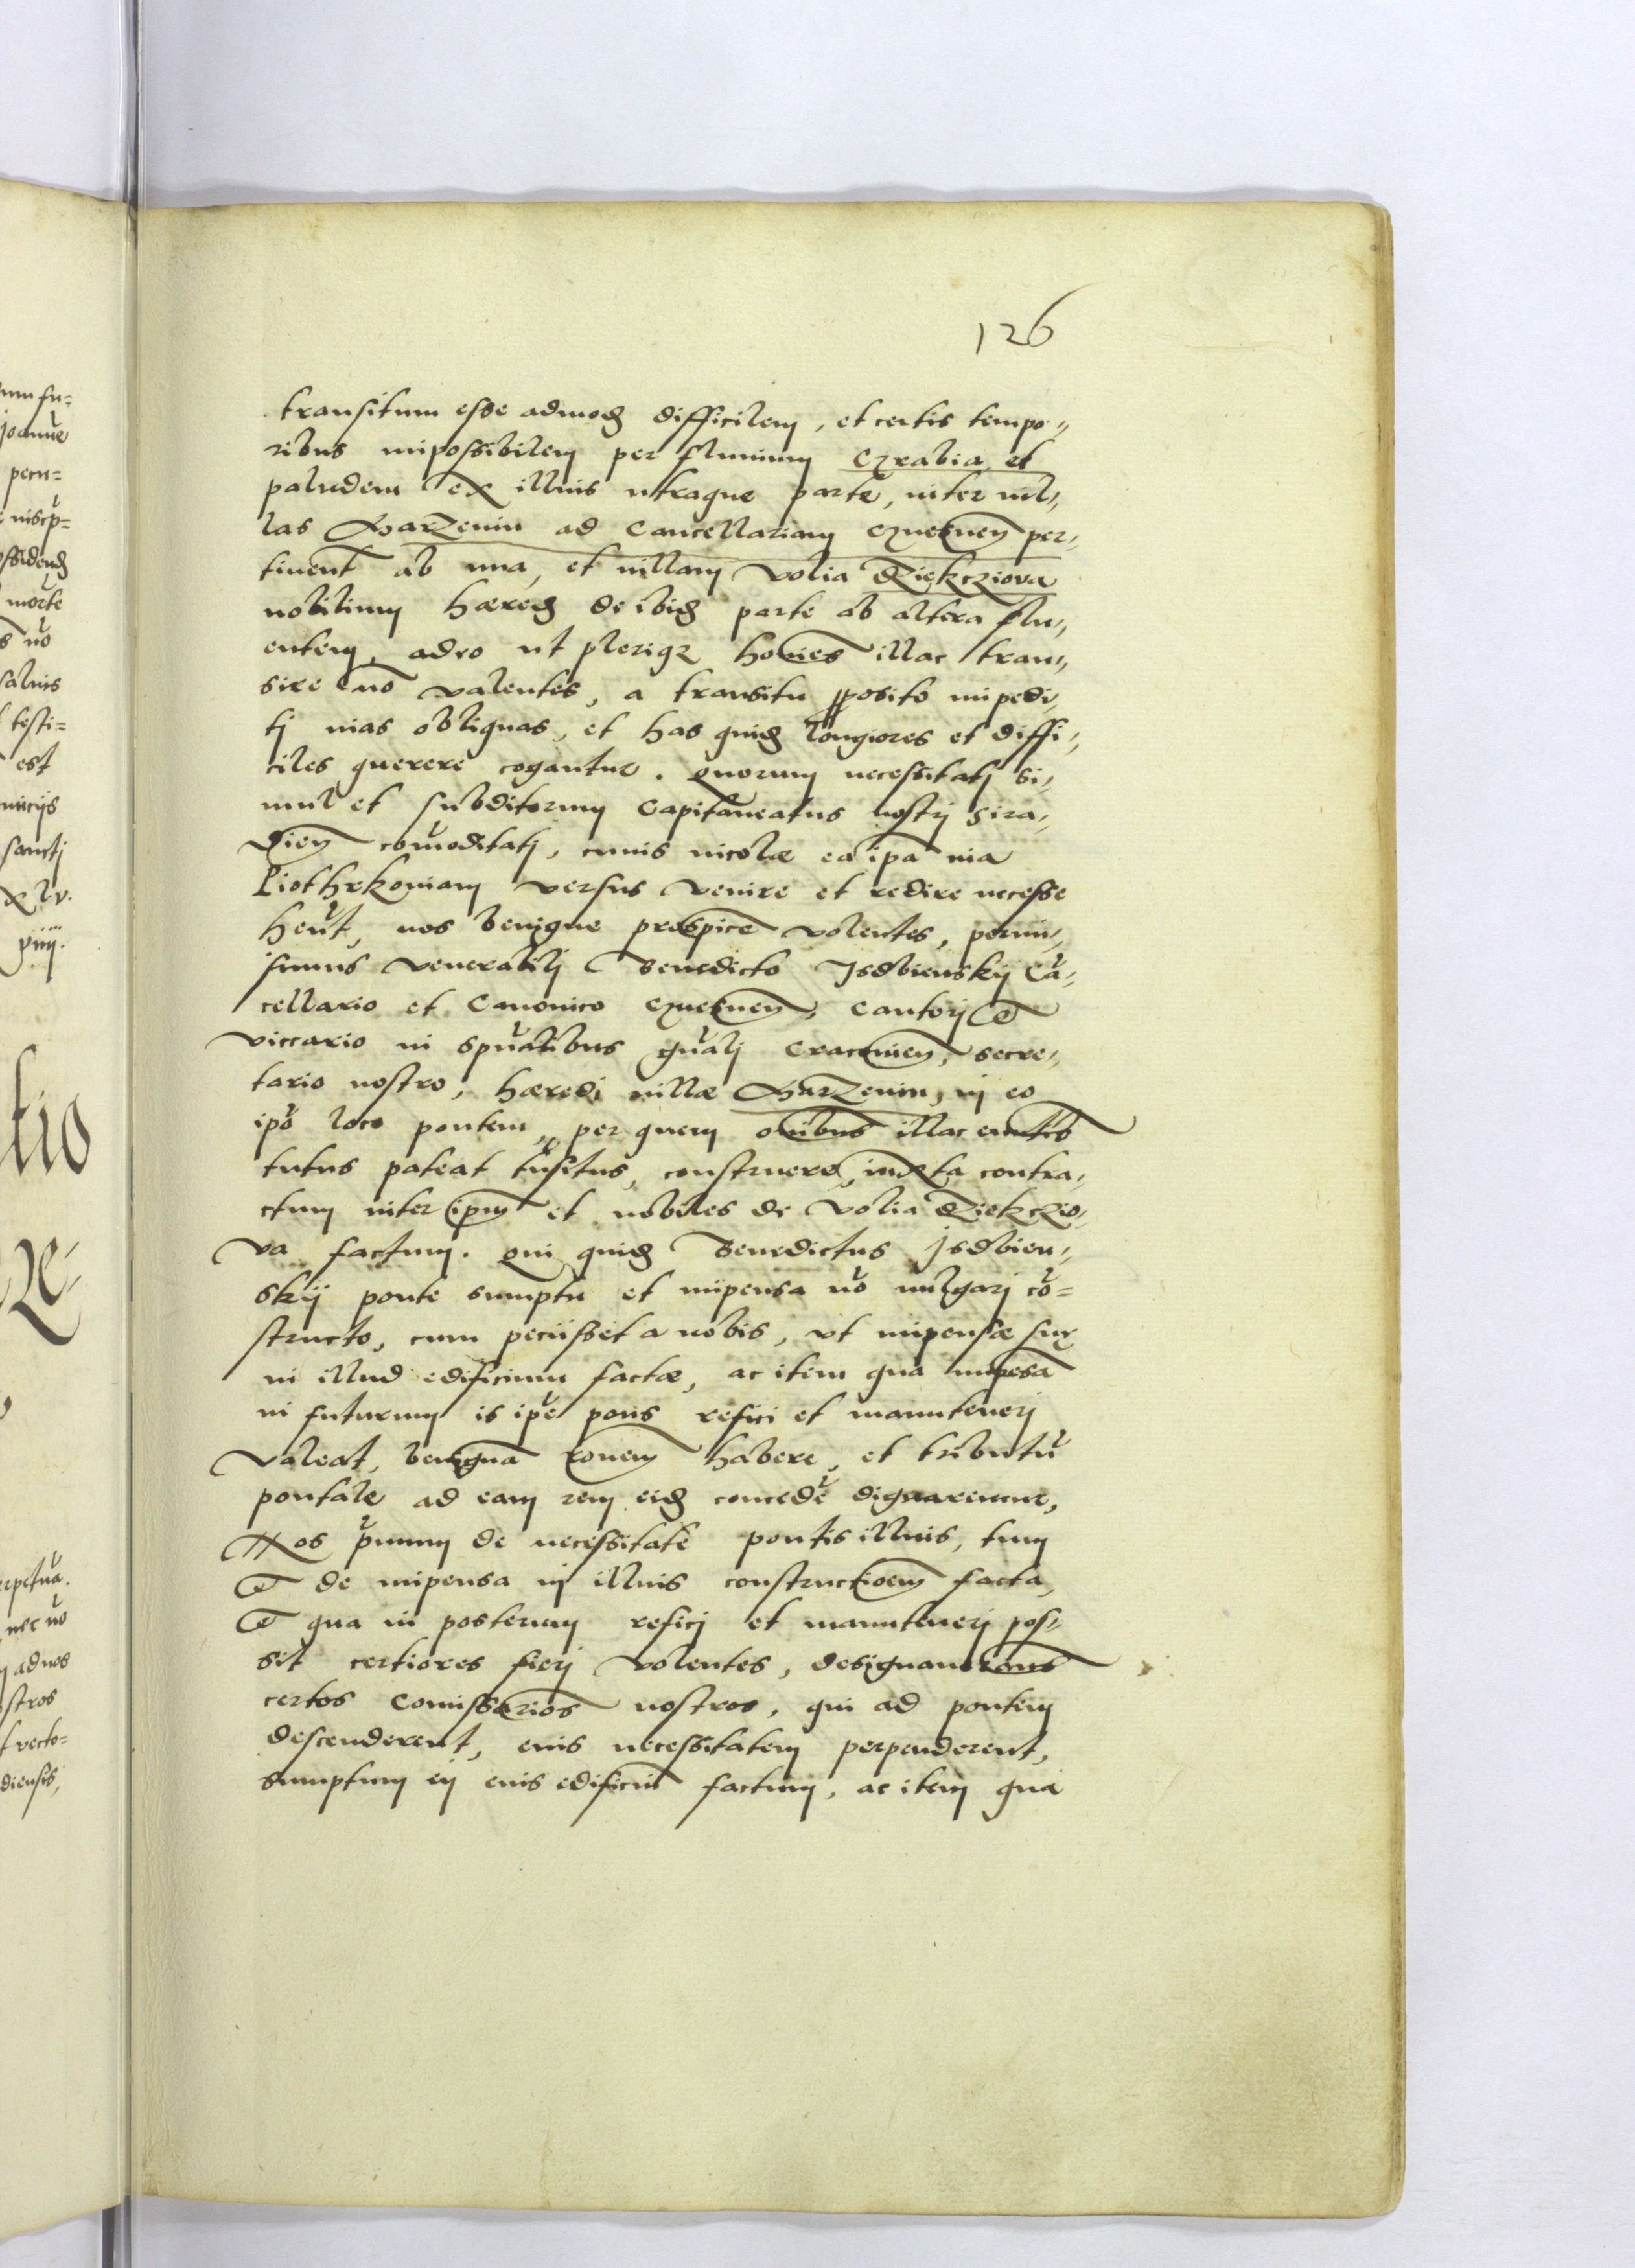 126
transitum esse admodɋ difficilem, et certis tempo⸗
ribus impossibilem per fluuium Czrabia et
paludem ex illius utraque parte, inter uil⸗
las Marzenin ad Cancellariam Gnesneñ per⸗
tinenť ab una, et uillam Volia Dziekcziova
nobilium hæredɋ de ibidɋ parte ab altera flu⸗
entem, adeo ut pleriqꝫ hoīes illac tran⸗
sire nō valentes, a transitu ꝓposito impedi⸗
tj uias obliquas, et has quidɋ longiores et diffi⸗
ciles querere cogantur. Quorum necessitatj si⸗
mul et subditorum Capitaneatus nostrj Sira⸗
dieñ com̄oditatj, cuius incolæ ea ip̄a uia
Piothrkoviam versus venire et redire necesse
hēnt, nos benigne prospicē volentes, permi⸗
simus venerabilj Benedicto Jsdbienskij Cā⸗
cellario et Canonico Gnesneñ, Cantorj et
viccario in sp̄ualibus gn̄alj Cracovieñ, Secre⸗
tario nostro, hæredi uillæ Marzenin, in eo
ip̄o loco pontem, per quem oībus illac euntibs
tutus pateat trāsitus, construere, iuxta contra⸗
ctum inter ip̄m et nobiles de Volia Dziekczio⸗
va factum. Qui quidɋ Benedictus Jsdbien⸗
skij ponte sumptu et impensa nō uulgarj cō=
structo, cum petiisset a nobis, vt impensæ suæ
in illud edificium factæ, ac item qua impēsa
in futurum is ip̄e pons refici et manutenerj
valeat, benignā rōnem habere, et tributū
pontale ad eam rem eidɋ concedē dignaremur,
Nos p̄mum de necessitate pontis illius, tum
et de impensa in illius constructioēm facta,
et qua in posterum reficj et manutenerj pos⸗
sit certiores fierj volentes, designaueramꝰ
certos Com̄issarios nostros, qui ad pontem
descenderent, eius necessitatem perpenderent,
sumptum in eius edificiū factum, ac item qua